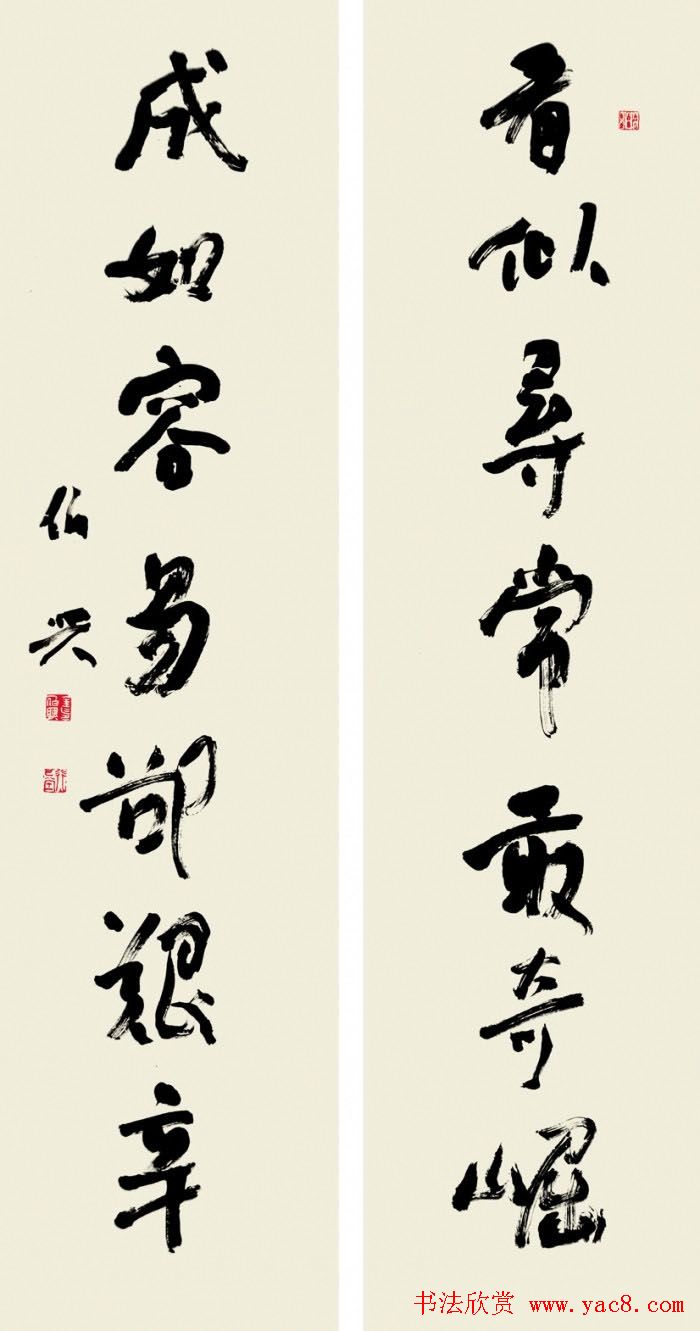 看似尋常最奇崛
成如容易卻艱辛
伯興
书法欣赏 www.yac8.com